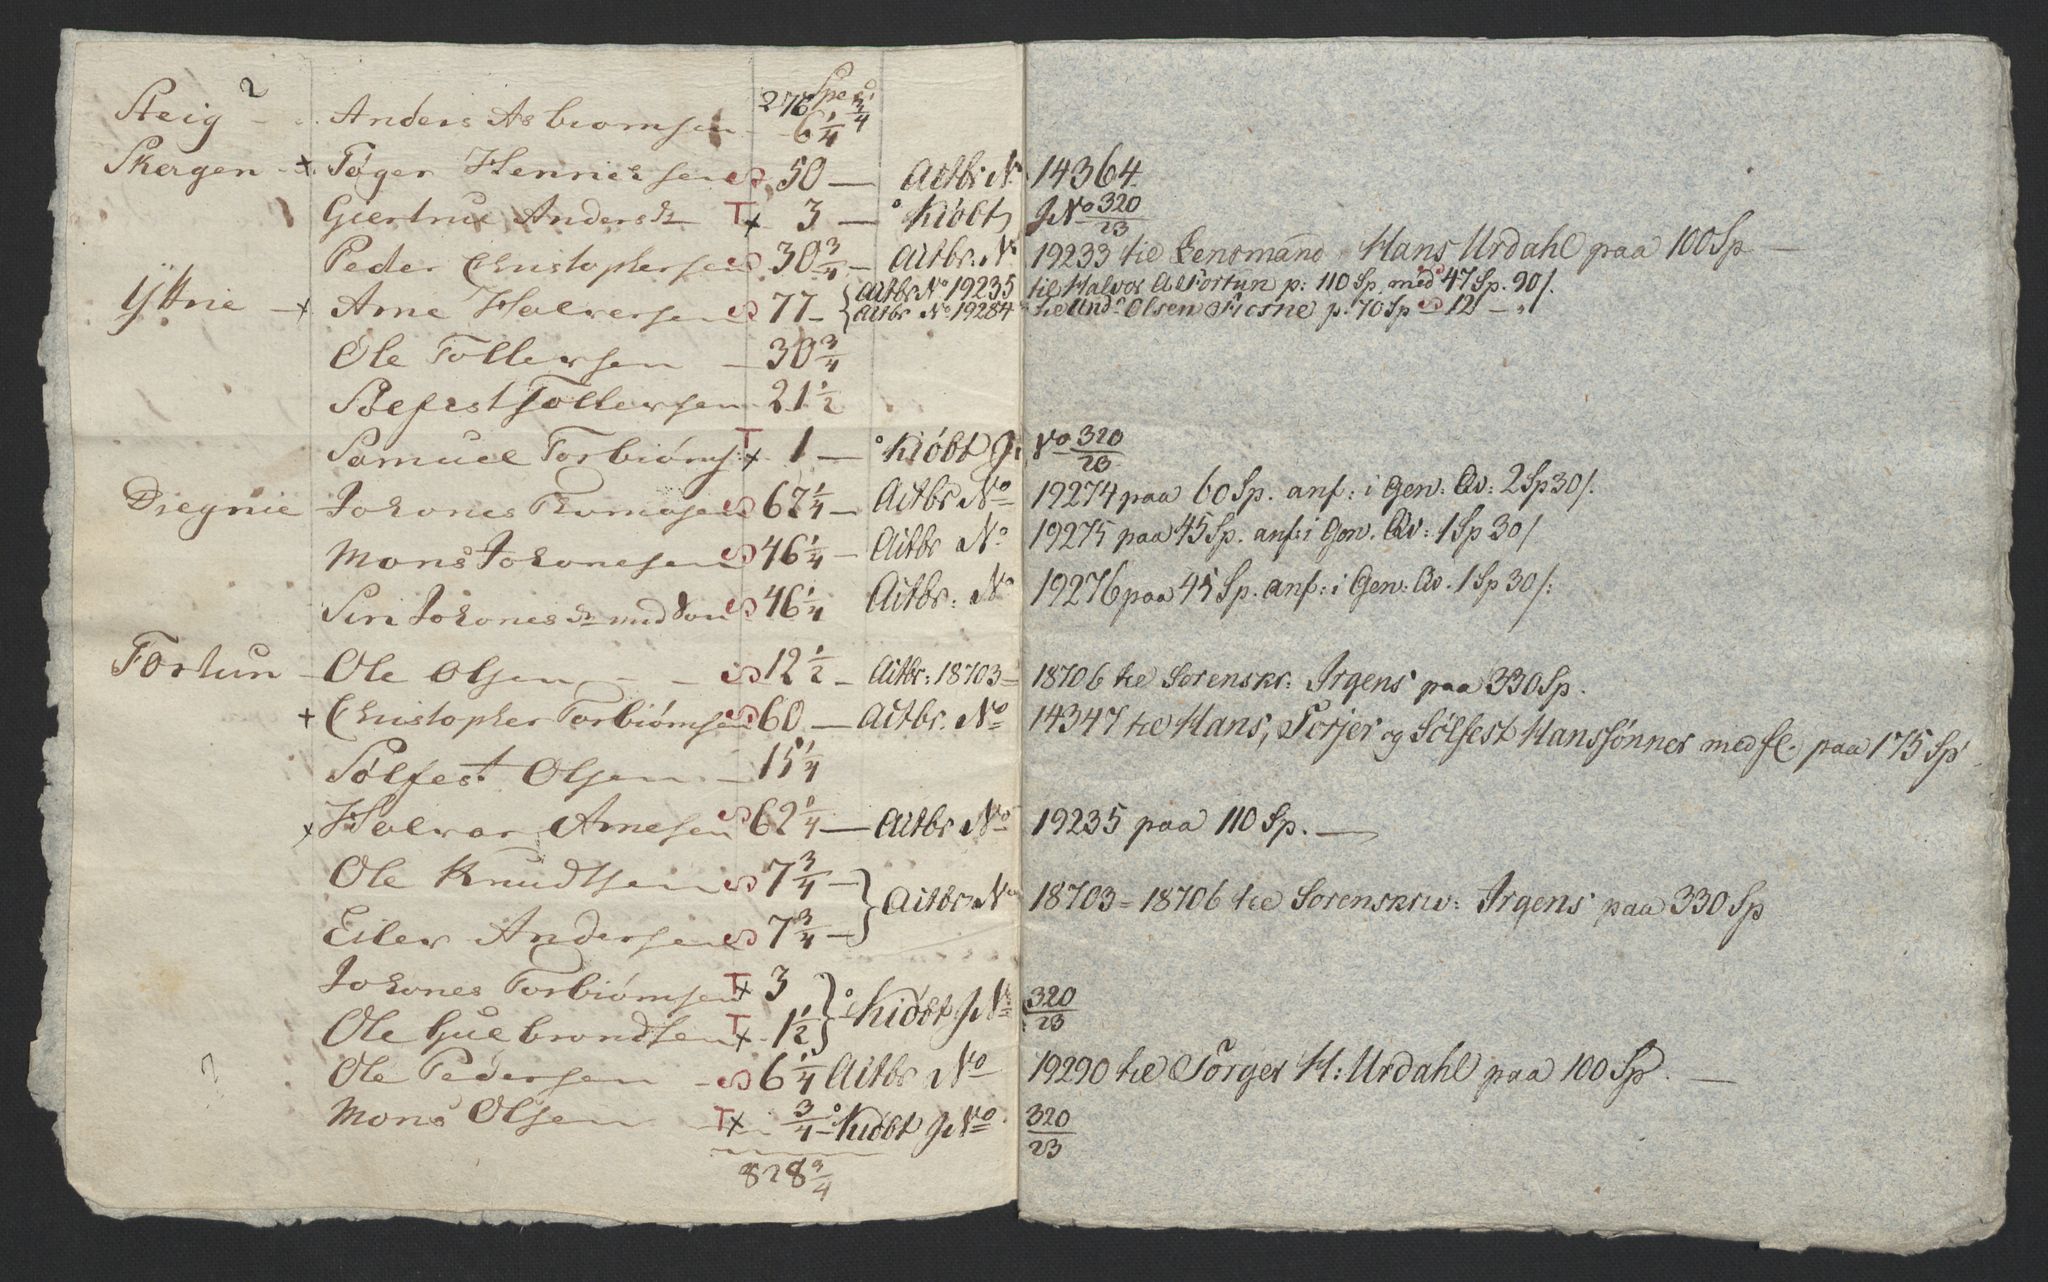 276 Spe d 3/4
Steig - Anders Asbiornsen - 6 1/4
Skergen - x Tøger Henrichsen 50 — Actbr. No 14364
Giertrue Andersdr T x 3 — ° Kiøbt JNo 320/23
Peder Christophersen 30 3/4 — Actbr. No 19233 til Lensmand Hans Urdahl paa 100 Sp —
Yttrie - x Arne Halversen 77 - { Actbr No 19235 til Halvor A Fortun p: 110 Sp. med 47 Sp. 90/.
Actbr No 19284 til And. Olsen p. 70 Sp 12 - "
Ole Tollersen — 30 3/4
Søefest Tollersen — 21 1/2
Samuel Torbiørns: T x 1 — ° Kiøbt J. No 320/23
Dregnie Johones Tomasen 62 1/4 — Actbr No 19274 paa 60 Sp. anf: i Gen: Qv: 2 Sp 30/.
Mons Johonesen 46 1/4 — Actbr No 19275 paa 45 Sp. anf: i Gen. Qv: 1 Sp 30/
Siri Johonesdr 46 1/4 Actbr: No 19276 paa 45 Sp. anf: i Gen: Qv. 1 Sp 30/:
Fortun - Ole Olsen - - 12 1/2 - Actbr: 18703 = 18706 til Sorenskr: Irgens paa 330 Sp.
x Christopher Torbiørnsen 60 — Actbr. No 14347 til Hans, Torjer og Sølfest Hanssønner med fl. paa 175 Sp
Sølfest Olsen — 15 1/4
x Halvor Arnesen 62 1/4 — Actbr No 19235 paa 110 Sp. —
Ole Knudtsen 7 3/4 —
} Actbr No 18703 = 18706 til Sorenskriv: Irgens paa 330 Sp
Eiler Andersen 7 3/4 —
Johones Torbiørnsen T x 3
} ° Kiøbt JNo 320/23
Ole Gulbrondsen T x 1 1/2
Ole Pedersen - 6 1/4 Actbr No 19290 til Torger H: Urdahl paa 100 Sp. —
Mons Olsen T x 3/4 - ° Kiøbt JNo 320/23
828 3/4